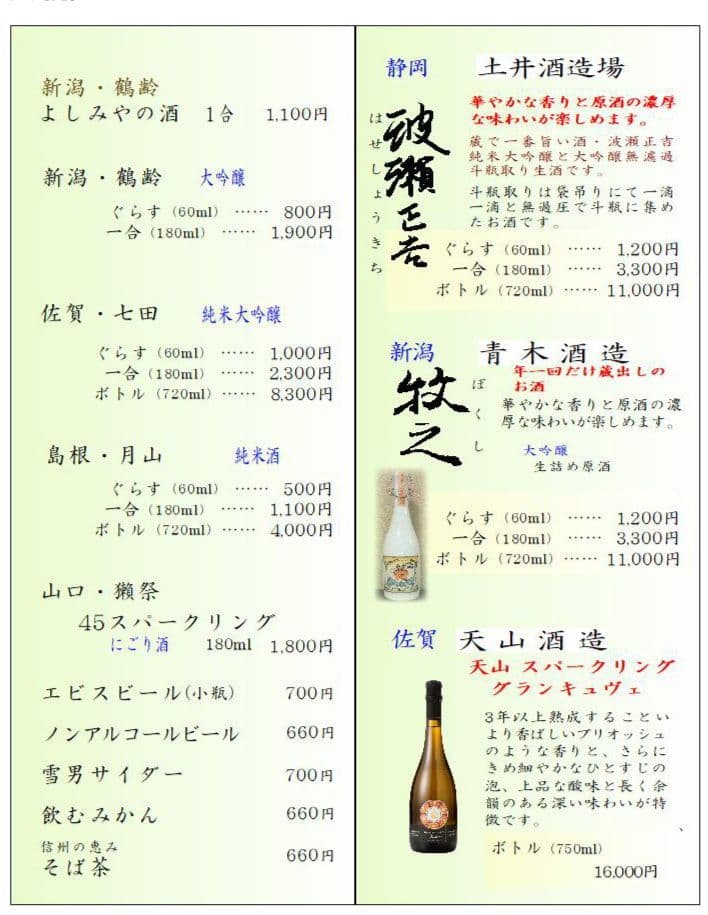 新潟・鶴齢
よしみやの酒 1合 1,100円
新潟・鶴齢 大吟醸
ぐらす（60ml） …… 800円
一合（180ml） …… 1,900円
佐賀・七田 純米大吟醸
ぐらす（60ml） …… 1,000円
一合（180ml） …… 2,300円
ボトル（720ml） …… 8,300円
島根・月山 純米酒
ぐらす（60ml） …… 500円
一合（180ml） …… 1,100円
ボトル（720ml） …… 4,000円
山口・獺祭
45スパークリング
にごり酒 180ml 1,800円
エビスビール(小瓶) 700円
ノンアルコールビール 660円
雪男サイダー 700円
飲むみかん 660円
信州の恵み
そば茶 660円
静岡 土井酒造場
波瀬正吉
はせしょうきち
華やかな香りと原酒の濃厚
な味わいが楽しめます。
蔵で一番旨い酒・波瀬正吉
純米大吟醸と大吟醸無濾過
斗瓶取り生酒です。
斗瓶取りは袋吊りにて一滴
一滴と無過圧で斗瓶に集め
たお酒です。
ぐらす（60ml） …… 1,200円
一合（180ml） …… 3,300円
ボトル（720ml） …… 11,000円
新潟 青木酒造
牧之
ぼくし
年一回だけ蔵出しの
お酒
華やかな香りと原酒の濃
厚な味わいが楽しめます。
大吟醸
生詰め原酒
ぐらす（60ml） …… 1,200円
一合（180ml） …… 3,300円
ボトル（720ml） …… 11,000円
佐賀 天山酒造
天山 スパークリング
グランキュヴェ
3年以上熟成することい
より香ばしいブリオッシュ
のような香りと、さらに
きめ細やかなひとすじの
泡、上品な酸味と長く余
韻のある深い味わいが特
徴です。
ボトル（750ml）
16,000円